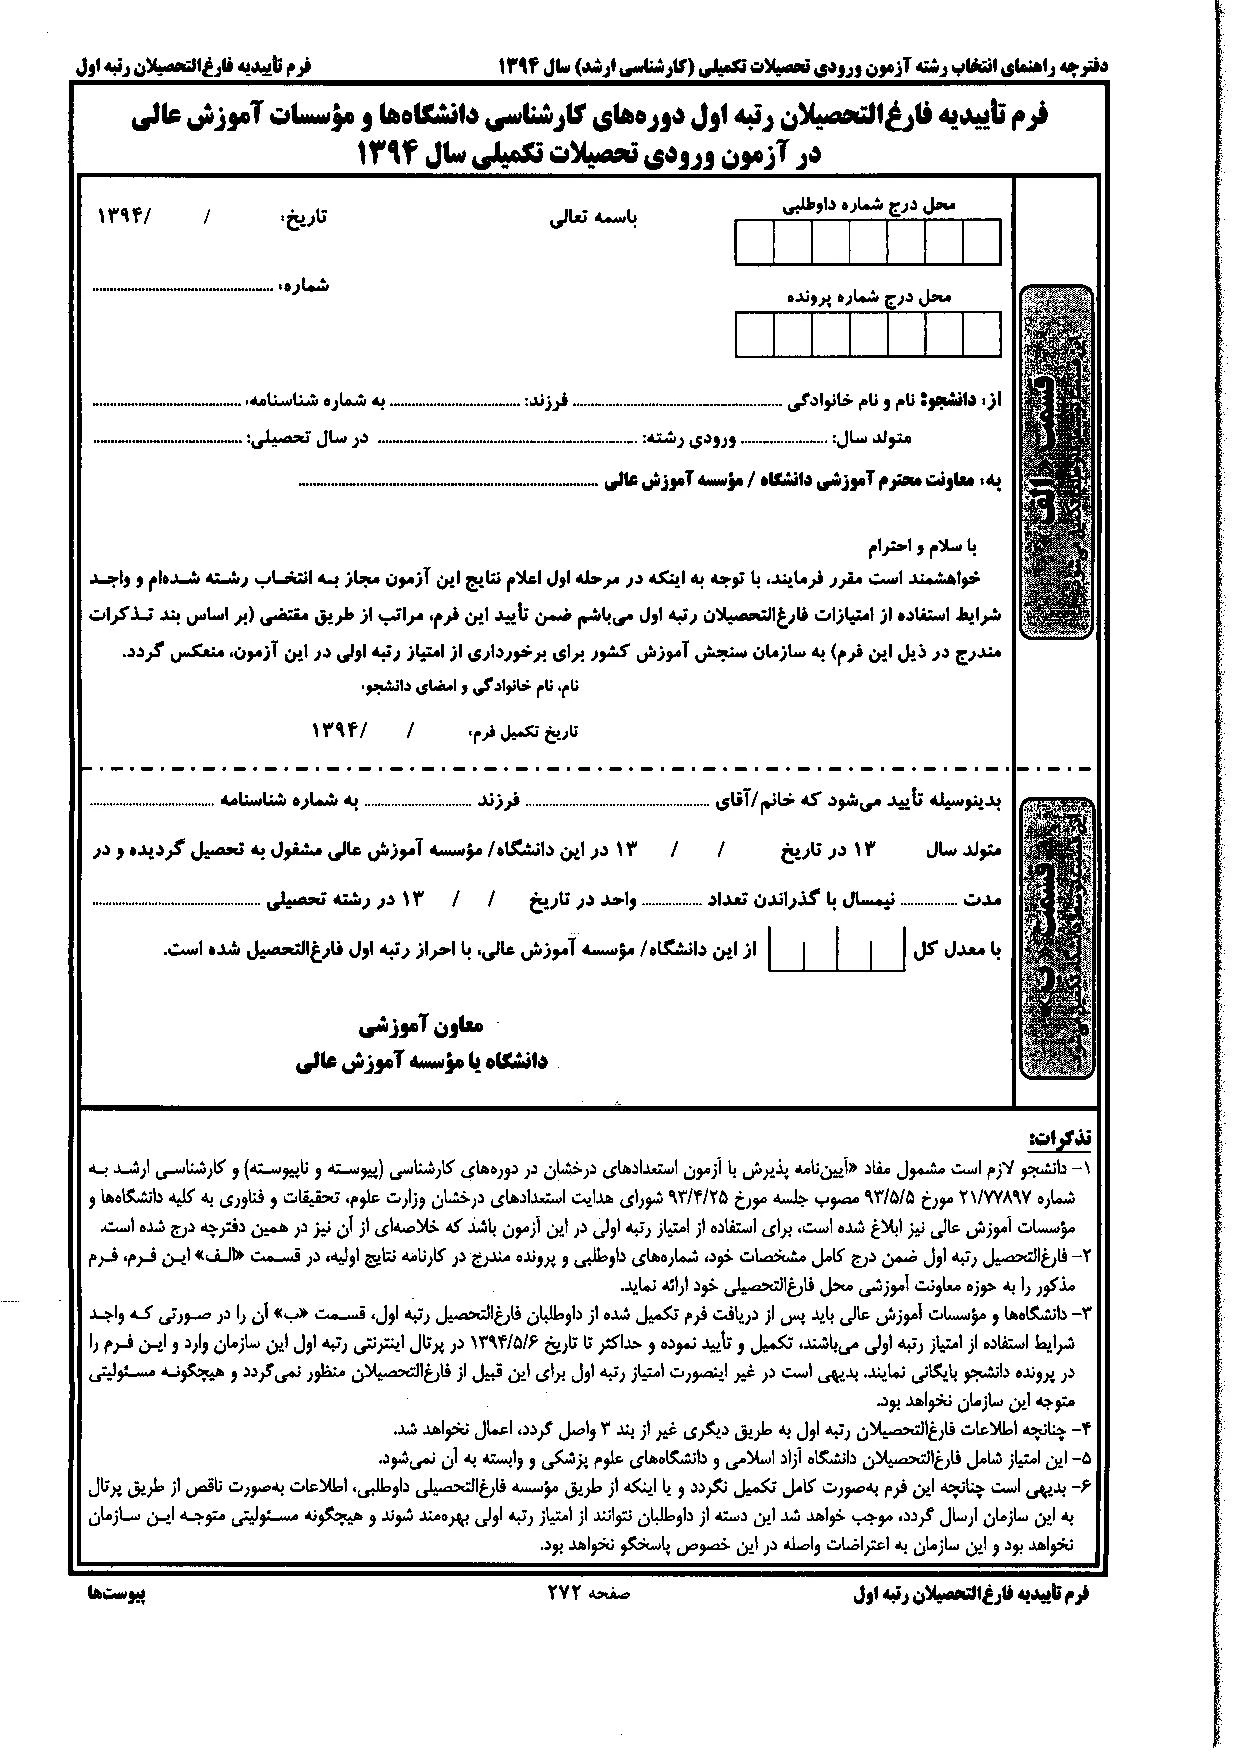 دفترچه راهنمای انتخاب رشته آزمون ورودی تحصیلات تکمیلی (کارشناسی ارشد) سال ۱۳۹۴ فرم تأییدیه فارغ‌التحصیلان رتبه اول
فرم تأییدیه فارغ‌التحصیلان رتبه اول دوره‌های کارشناسی دانشگاه‌ها و مؤسسات آموزش عالی
در آزمون ورودی تحصیلات تکمیلی سال ۱۳۹۴
محل درج شماره داوطلبی
باسمه تعالی
تاریخ: / /۱۳۹۴
شماره: ........................
محل درج شماره پرونده
قسمت «الف»
از: دانشجو: نام و نام خانوادگی ........................ فرزند: ........................ به شماره شناسنامه: ........................
متولد سال: ........................ ورودی رشته: ........................ در سال تحصیلی: ........................
به: معاونت محترم آموزشی دانشگاه / مؤسسه آموزش عالی ........................
با سلام و احترام
خواهشمند است مقرر فرمایند، با توجه به اینکه در مرحله اول اعلام نتایج این آزمون مجاز بـه انتخـاب رشـته شـده‌ام و واجـد
شرایط استفاده از امتیازات فارغ‌التحصیلان رتبه اول می‌باشم ضمن تأیید این فرم، مراتب از طریق مقتضی (بر اساس بند تـذکرات
مندرج در ذیل این فرم) به سازمان سنجش آموزش کشور برای برخورداری از امتیاز رتبه اولی در این آزمون، منعکس گردد.
نام، نام خانوادگی و امضای دانشجو:
تاریخ تکمیل فرم: / /۱۳۹۴
قسمت «ب»
بدینوسیله تأیید می‌شود که خانم/آقای ........................ فرزند ........................ به شماره شناسنامه ........................
متولد سال ۱۳ در تاریخ / / ۱۳ در این دانشگاه/ مؤسسه آموزش عالی مشغول به تحصیل گردیده و در
مدت ............... نیمسال با گذراندن تعداد ............... واحد در تاریخ / / ۱۳ در رشته تحصیلی ........................
با معدل کل از این دانشگاه/ مؤسسه آموزش عالی، با احراز رتبه اول فارغ‌التحصیل شده است.
معاون آموزشی
دانشگاه یا مؤسسه آموزش عالی
تذکرات:
۱- دانشجو لازم است مشمول مفاد «آیین‌نامه پذیرش با آزمون استعدادهای درخشان در دوره‌های کارشناسی (پیوسـته و ناپیوسـته) و کارشناسـی ارشـد بـه
شماره ۲۱/۷۷۸۹۷ مورخ ۹۳/۵/۵ مصوب جلسه مورخ ۹۳/۴/۲۵ شورای هدایت استعدادهای درخشان وزارت علوم، تحقیقات و فناوری به کلیه دانشگاه‌ها و
مؤسسات آموزش عالی نیز ابلاغ شده است، برای استفاده از امتیاز رتبه اولی در این آزمون باشد که خلاصه‌ای از آن نیز در همین دفترچه درج شده است.
۲- فارغ‌التحصیل رتبه اول ضمن درج کامل مشخصات خود، شماره‌های داوطلبی و پرونده مندرج در کارنامه نتایج اولیه، در قسمت «الـف» ایـن فـرم، فـرم
مذکور را به حوزه معاونت آموزشی محل فارغ‌التحصیلی خود ارائه نماید.
۳- دانشگاه‌ها و مؤسسات آموزش عالی باید پس از دریافت فرم تکمیل شده از داوطلبان فارغ‌التحصیل رتبه اول، قسـمت «ب» آن را در صـورتی کـه واجـد
شرایط استفاده از امتیاز رتبه اولی می‌باشند، تکمیل و تأیید نموده و حداکثر تا تاریخ ۱۳۹۴/۵/۶ در پرتال اینترنتی رتبه اول این سازمان وارد و ایـن فـرم را
در پرونده دانشجو بایگانی نمایند. بدیهی است در غیر اینصورت امتیاز رتبه اول برای این قبیل از فارغ‌التحصیلان منظور نمی‌گردد و هیچگونـه مسـئولیتی
متوجه این سازمان نخواهد بود.
۴- چنانچه اطلاعات فارغ‌التحصیلان رتبه اول به طریق دیگری غیر از بند ۳ واصل گردد، اعمال نخواهد شد.
۵- این امتیاز شامل فارغ‌التحصیلان دانشگاه آزاد اسلامی و دانشگاه‌های علوم پزشکی و وابسته به آن نمی‌شود.
۶- بدیهی است چنانچه این فرم به‌صورت کامل تکمیل نگردد و یا اینکه از طریق مؤسسه فارغ‌التحصیلی داوطلبی، اطلاعات به‌صورت ناقص از طریق پرتال
به این سازمان ارسال گردد، موجب خواهد شد این دسته از داوطلبان نتوانند از امتیاز رتبه اولی بهره‌مند شوند و هیچگونه مسـئولیتی متوجـه ایـن سـازمان
نخواهد بود و این سازمان به اعتراضات واصله در این خصوص پاسخگو نخواهد بود.
فرم تأییدیه فارغ‌التحصیلان رتبه اول صفحه ۲۷۲ پیوست‌ها